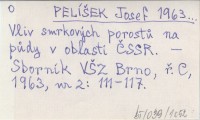 O
PELÍŠEK Josef 1963...
Vliv smrkových porostů na
půdy v oblasti ČSSR. —
Sborník VŠZ Brno, ř. C,
1963, nr 2: 111-117.